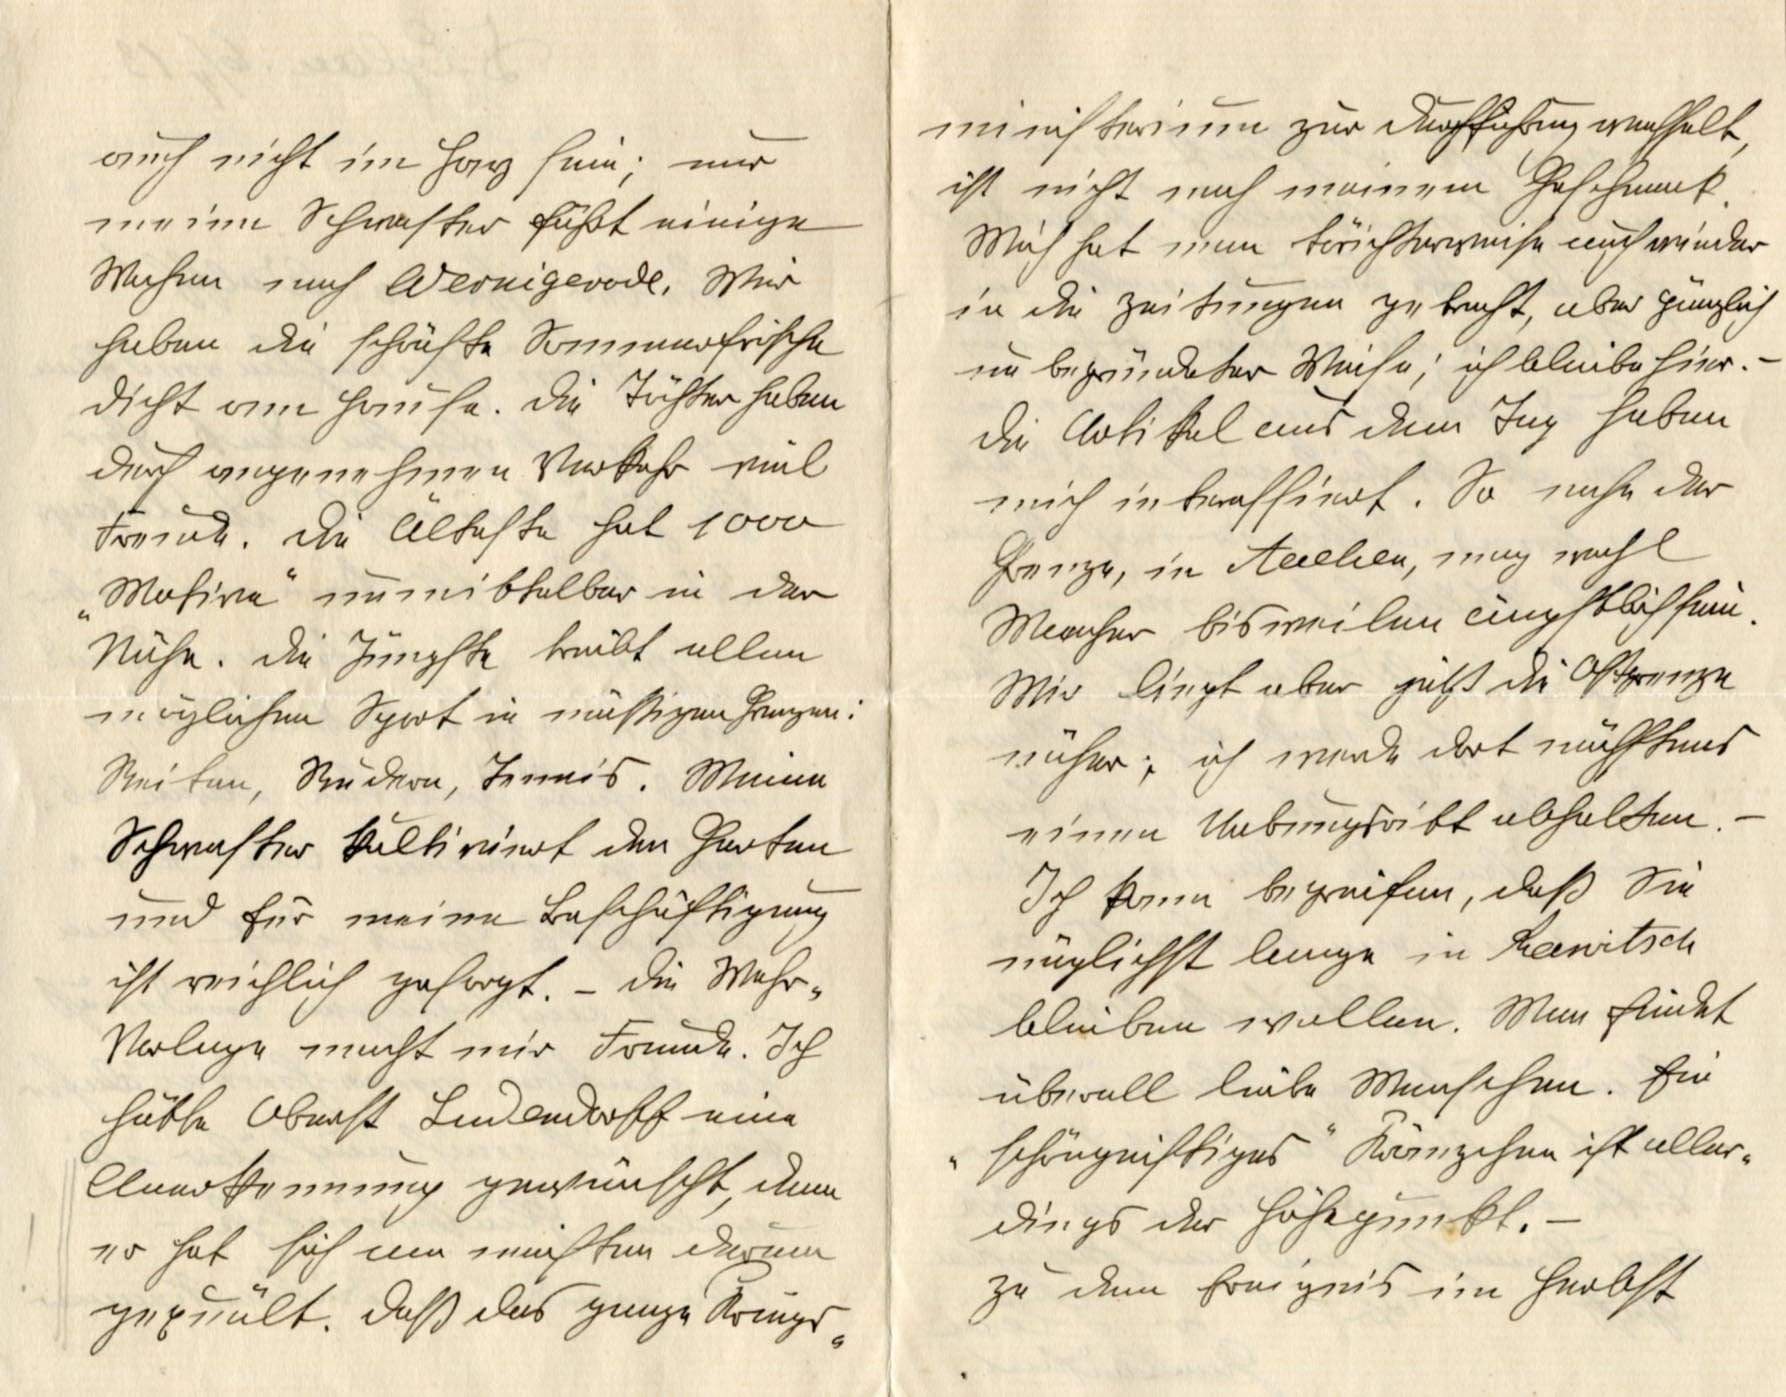 auch nicht im Harz sein; nur
meine Schwester fährt einige
Wochen nach Wernigerode. Wir
haben die schönste Sommerfrische
dicht am Hause. Die Töchter haben
durch angenehmen Verkehr viel
Freude. Die Älteste hat 1000
„Motive“ unmittelbar in der
Nähe. Die Jüngste treibt allen
möglichen Sport in mäßigen Grenzen:
Reiten, Rudern, Tennis. Meine
Schwester kultiviert den Garten
und für meine Beschäftigung
ist reichlich gesorgt. – Die Wehr-
Vorlage macht mir Freude. Ich
hätte Oberst Ludendorff eine
Anerkennung gewünscht, denn
er hat sich am meisten darum
gequält. Daß das ganze Kriegs-
ministerium zur Durchführung wechselt,
ist nicht nach meinem Geschmack.
Mich hat man törichterweise auch wieder
in die Zeitungen gebracht, aber gänzlich
unbegründeter Weise; ich bleibe hier. –
Die Artikel aus dem Tag haben
mich interessiert. So nahe der
Grenze, in Aachen, mag wohl
Mancher bisweilen ängstlich sein.
Mir liegt aber jetzt die Ostgrenze
näher; ich werde dort nächstens
einen Uebungsritt abhalten. –
Ich kann begreifen, daß Sie
möglichst lange in Rawitsch
bleiben wollen. Man findet
überall liebe Menschen. Ein
„schöngeistiges“ Kränzchen ist aller-
dings der Höhepunkt. –
Zu dem Ereignis im Herbst